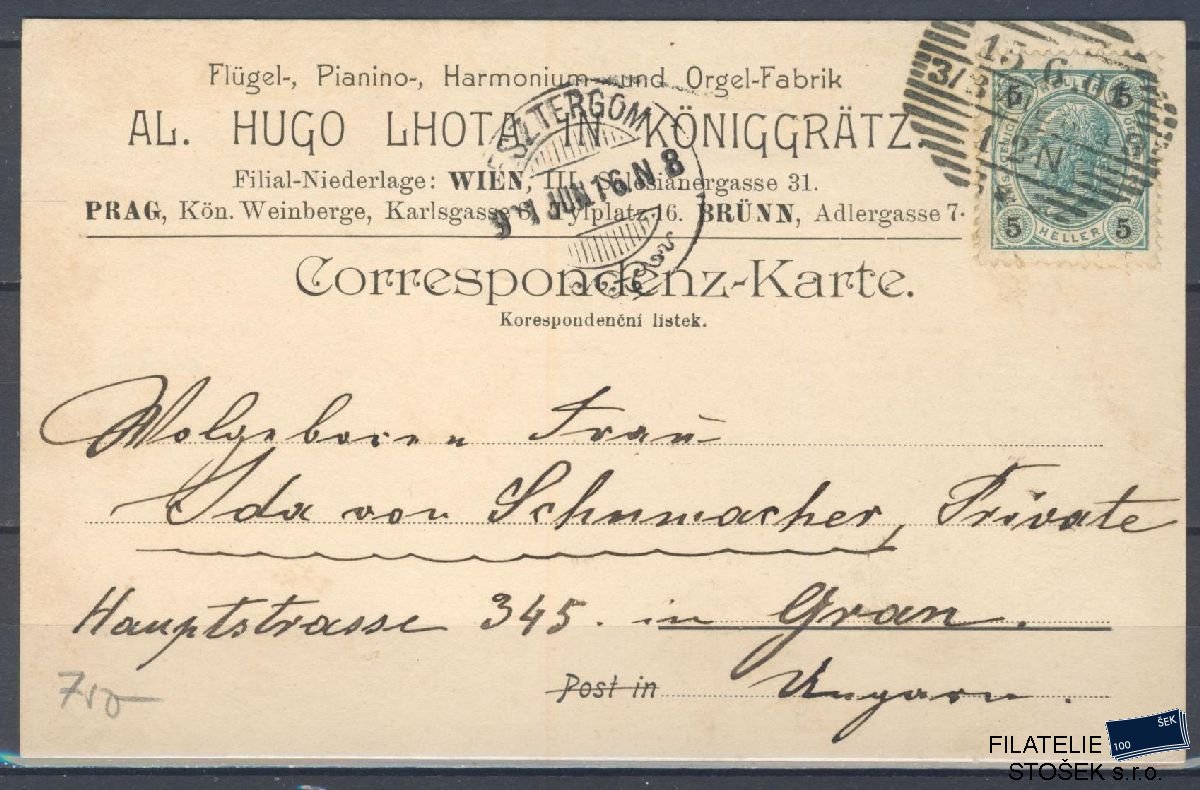 Flügel-, Pianino-, Harmonium- und Orgel-Fabrik
AL. HUGO LHOTA IN KÖNIGGRÄTZ
Filial-Niederlage: WIEN, III. Salesianergasse 31.
PRAG, Kön. Weinberge, Karlsgasse 6, Tylplatz 16. BRÜNN, Adlergasse 7.
ESZTERGOM
JUN 16 N 8
15 6
12 N
5 5
5 HELLER 5
Correspondenz-Karte.
Korespondenční listek.
Wolgeboren Frau
Ida von Schumacher, Private
Hauptstrasse 345. in Gran.
Post in Ungarn.
FILATELIE
STOŠEK s.r.o.
100 ŠEK